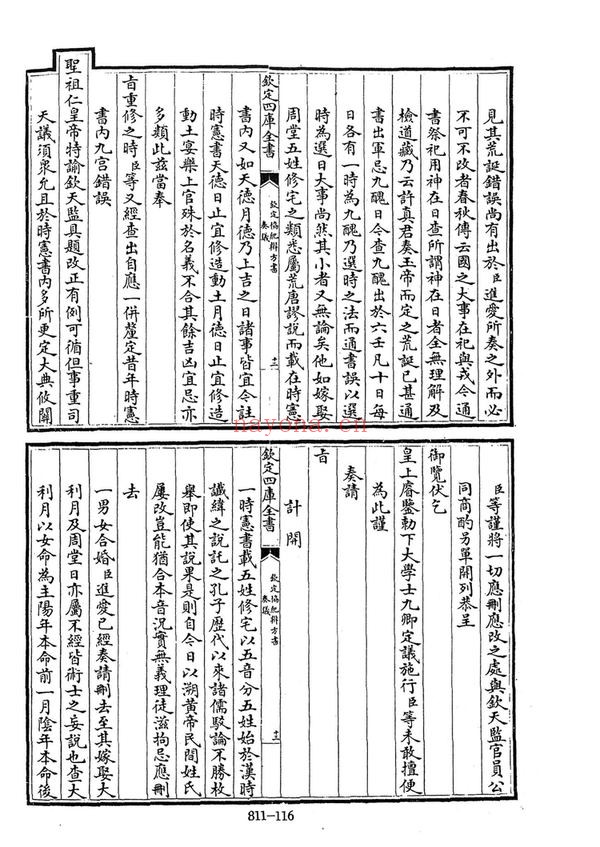 見其荒誕錯誤尚有出於臣進愛所奏之外而必
不可不改者春秋傳云國之大事在祀與戎今通
書祭祀用神在日查所謂神在日者全無理解及
檢道藏乃云許真君奏玉帝而定之荒誕已甚通
書出軍忌九醜日今查九醜出於六壬凡十日每
日各有一時為九醜乃選時之法而通書誤以選
時為選日大事尚然其小者又無論矣他如嫁娶
周堂五姓修宅之類悉屬荒唐謬說而載在時憲
欽定四庫全書
欽定協紀辨方書
奏議
十二
書內又如天德月德乃上吉之日諸事皆宜今註
時憲書天德日止宜修造動土月德日止宜修造
動土宴樂上官殊於名義不合其餘吉凶宜忌亦
多類此茲當奉
㫖重修之時臣等又經查出自應一併釐定昔年時憲
書內九宮錯誤
聖祖仁皇帝特諭欽天監具題改正有例可循但事重司
天議須衆允且於時憲書內多所更定大典攸關
臣等謹將一切應刪應改之處與欽天監官員公
同商酌另單開列恭呈
御覽伏乞
皇上睿鑒勅下大學士九卿定議施行臣等未敢擅便
為此謹
奏請
㫖
計開
欽定四庫全書
欽定協紀辨方書
奏議
十三
一時憲書載五姓修宅以五音分五姓始於漢時
讖緯之說託之孔子歷代以來諸儒駁論不勝枚
舉即使其說果是則自今日以溯黃帝民間姓氏
屢改豈能猶合本音況實無義理徒滋拘忌應刪
去
一男女合婚臣進愛已經奏請刪去至其嫁娶大
利月及周堂日亦屬不經皆術士之妄說也查大
利月以女命為主陽年本命前一月陰年本命後
nayona.cn
811-116